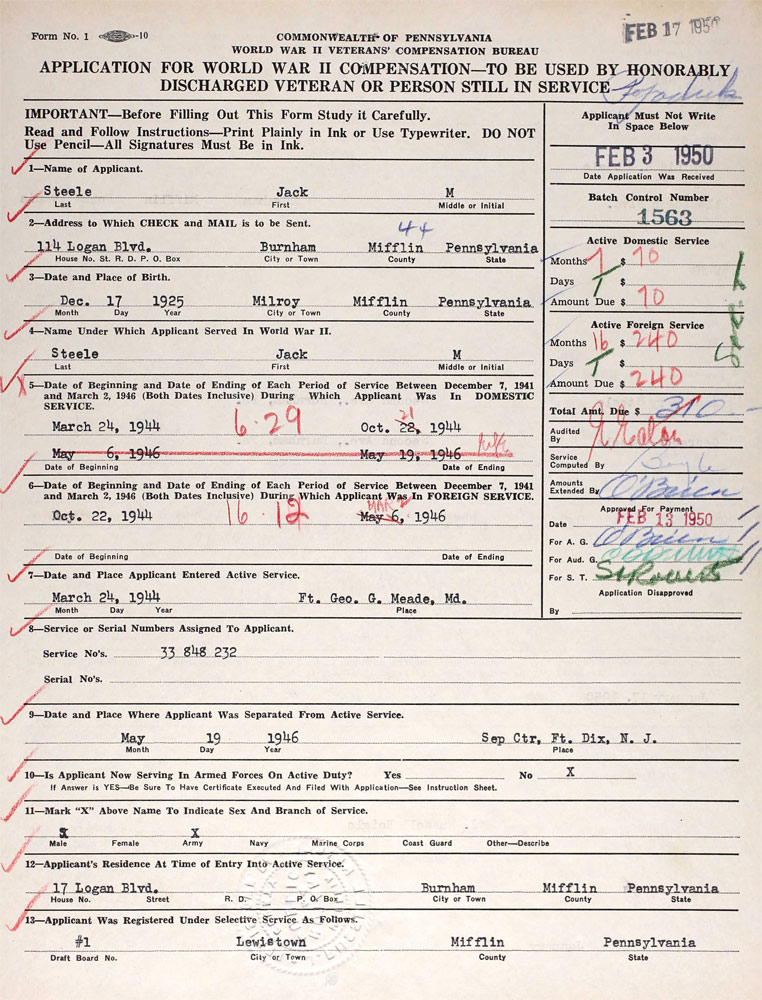 Form No. 1 -10
COMMONWEALTH OF PENNSYLVANIA
WORLD WAR II VETERANS' COMPENSATION BUREAU
FEB 17 1950
APPLICATION FOR WORLD WAR II COMPENSATION—TO BE USED BY HONORABLY
DISCHARGED VETERAN OR PERSON STILL IN SERVICE
IMPORTANT—Before Filling Out This Form Study it Carefully.
Read and Follow Instructions—Print Plainly in Ink or Use Typewriter. DO NOT
Use Pencil—All Signatures Must Be in Ink.
1—Name of Applicant.
Steele Jack M
Last First Middle or Initial
2—Address to Which CHECK and MAIL is to be Sent.
44
114 Logan Blvd. Burnham Mifflin Pennsylvania
House No. St. R. D. P. O. Box City or Town County State
3—Date and Place of Birth.
Dec. 17 1925 Milroy Mifflin Pennsylvania
Month Day Year City or Town County State
4—Name Under Which Applicant Served In World War II.
Steele Jack M
Last First Middle or Initial
5—Date of Beginning and Date of Ending of Each Period of Service Between December 7, 1941
and March 2, 1946 (Both Dates Inclusive) During Which Applicant Was In DOMESTIC
SERVICE.
21
March 24, 1944 6-29 Oct. 22, 1944
May 6, 1946 May 19, 1946
Date of Beginning Date of Ending
6—Date of Beginning and Date of Ending of Each Period of Service Between December 7, 1941
and March 2, 1946 (Both Dates Inclusive) During Which Applicant Was In FOREIGN SERVICE.
MAR 2
Oct. 22, 1944 16-12 May 6, 1946
Date of Beginning Date of Ending
7—Date and Place Applicant Entered Active Service.
March 24, 1944 Ft. Geo. G. Meade, Md.
Month Day Year Place
8—Service or Serial Numbers Assigned To Applicant.
Service No's. 33 848 232
Serial No's.
9—Date and Place Where Applicant Was Separated From Active Service.
May 19 1946 Sep Ctr, Ft. Dix, N. J.
Month Day Year Place
10—Is Applicant Now Serving In Armed Forces On Active Duty? Yes No X
If Answer is YES—Be Sure To Have Certificate Executed And Filed With Application—See Instruction Sheet.
11—Mark "X" Above Name To Indicate Sex And Branch of Service.
X X
Male Female Army Navy Marine Corps Coast Guard Other—Describe
12—Applicant's Residence At Time of Entry Into Active Service.
17 Logan Blvd. Burnham Mifflin Pennsylvania
House No. Street R. D. P. O. Box City or Town County State
13—Applicant Was Registered Under Selective Service As Follows.
#1 Lewistown Mifflin Pennsylvania
Draft Board No. City or Town County State
Applicant Must Not Write
In Space Below
FEB 3 1950
Date Application Was Received
Batch Control Number
1563
Active Domestic Service
Months 7 $ 70
Days $
Amount Due $ 70
Active Foreign Service
Months 16 $ 240
Days $
Amount Due $ 240
Total Amt. Due $ 310
Audited
By
Service
Computed By
Amounts
Extended By O'Brien
Approved For Payment
Date FEB 13 1950
For A. G. O'Brien
For Aud. G.
For S. T.
Application Disapproved
By